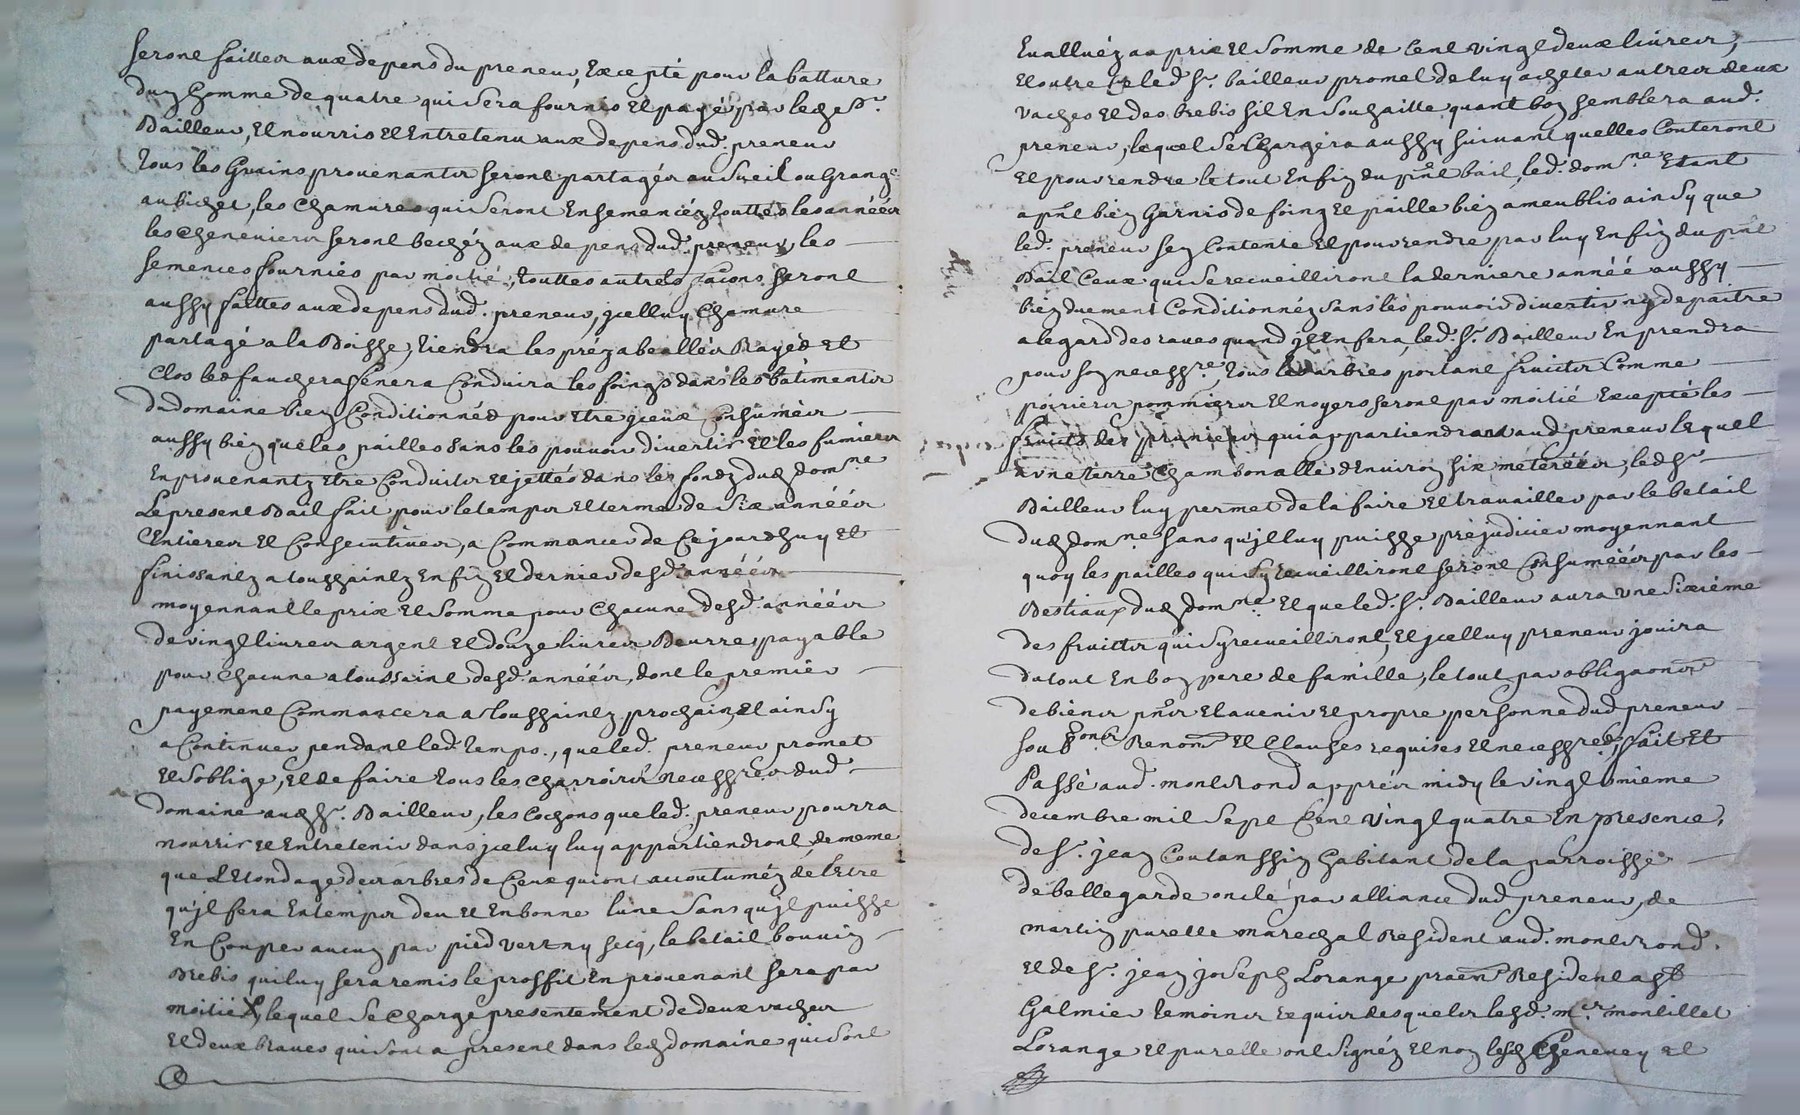 seront faittes aux depens du preneur, Excepté pour la batture
dun homme de quatre qui sera fournis Et payé par led. Sr.
Bailleur, Et nourris Et Entretenu aux depens dud. preneur
Tous les Grains provenants seront partagés au sueil ou Grange
au bichet, les chamures qui seront Ensemencéz touttes les années
les cheneviers seront bechéz aux depens dud. preneur, les
semences fournies par moitié, touttes autres façons seront
aussy faittes aux depens dud. preneur, jcelluy Chamure
partagé a la Boisse, tiendra les préz abeallés Rayés Et
Clos les fauchera fenera Conduira les foings dans les batiments
du domaine bien Conditionnés pour Etre jceux Consumés
aussy bien que les pailles sans les pouvoir divertir Et les fumiers
En provenantz Etre Conduits Et jettés dans les fondz dud. domne
Le present Bail fait pour le temps Et terme de Six années
Entieres Et Consecutives, a Commancer de Ce jourdhuy Et
finissantz a toussaintz En fin Et dernier desd. années
moyennant le prix Et somme pour Chacune desd. années
de vingt livres argent Et douze livres Beurre payable
pour Chacune a toussaint desd. années, dont le premier
payement Commancera a toussaintz prochain, Et ainsy
a Continuer pendant led. temps, que led. preneur promet
Et soblige, Et de faire tous les charroirs necessres dud.
domaine aud. Sr. Bailleur, les Cochons que led. preneur pourra
nourrir Et Entretenir dans jceluy luy appartiendront, de meme
que LEtondage des arbres de Ceux qui ont accoutuméz de lEtre
qu'jl fera En temps deu Et En bonne lune sans qu'jl puisse
En Couper aucun par pied vert ny secq, le betail bouvin
Brebis qui luy sera remis le proffit En provenant sera par
moitié, lequel se Charge presentement de deux vaches
Et deux braves qui sont a present dans led. domaine qui sont
Evalluéz au prix Et somme de Cent vingt deux livres,
Et outre Ce led. Sr. bailleur promet de luy acheter autres deux
vaches Et des brebis sil En souhaitte quant bon semblera aud.
preneur, lequel sen Chargera aussy suivant quelles Conteront
Et pour rendre le tout En fin du pñt bail, led. domne Etant
a pñt bien Garnis de foing Et paille bien ameublis ainsy que
led. preneur sen Contente Et pour rendre par luy En fin du pñt
Bail Ceux qui se recueilliront la derniere année aussy
bien duement Conditionnéz sans les pouvoir divertir ny depaitre
a legard des raves quand jl En fera, led. Sr. Bailleur En prendra
pour son necessre, tous les arbres portant fruits Comme
poiriers pommiers Et noyers seront par moitié Excepté les
fruits des pruniers qui appartiendront aud. preneur lequel
a une terre Chambonalle dEnviron six meterées, led. Sr.
Bailleur luy permet de la faire Et travailler par le betail
dud. domne sans qu'jl luy puisse prejudicier moyennant
quoy les pailles qui sy recueilliront seront Consumées par les
Bestiaux dud. domne Et que led. Sr. Bailleur aura une sixieme
des fruits qui sy recueilliront, Et jcelluy preneur jouira
du tout En bon pere de famille, le tout par obligaons
de biens pñts Et avenir Et propre personne dud. preneur
Renons Et Clauses requises Et necessres, fait Et
Passé aud. montrond apprés midy le vingt
decembre mil sept Cent vingt quatre En presence,
de Sr. jean Coutanssin habitant de la parroisse
de bellegarde oncle par alliance dud. preneur, de
martin purelle marechal Resident aud. montrond,
Et de Sr. jean joseph Lorange praēn Resident a St
Galmier temoins requis desquels lesd. mes montillet
Lorange Et purelle ont signéz Et non lesd. Chenevey Et